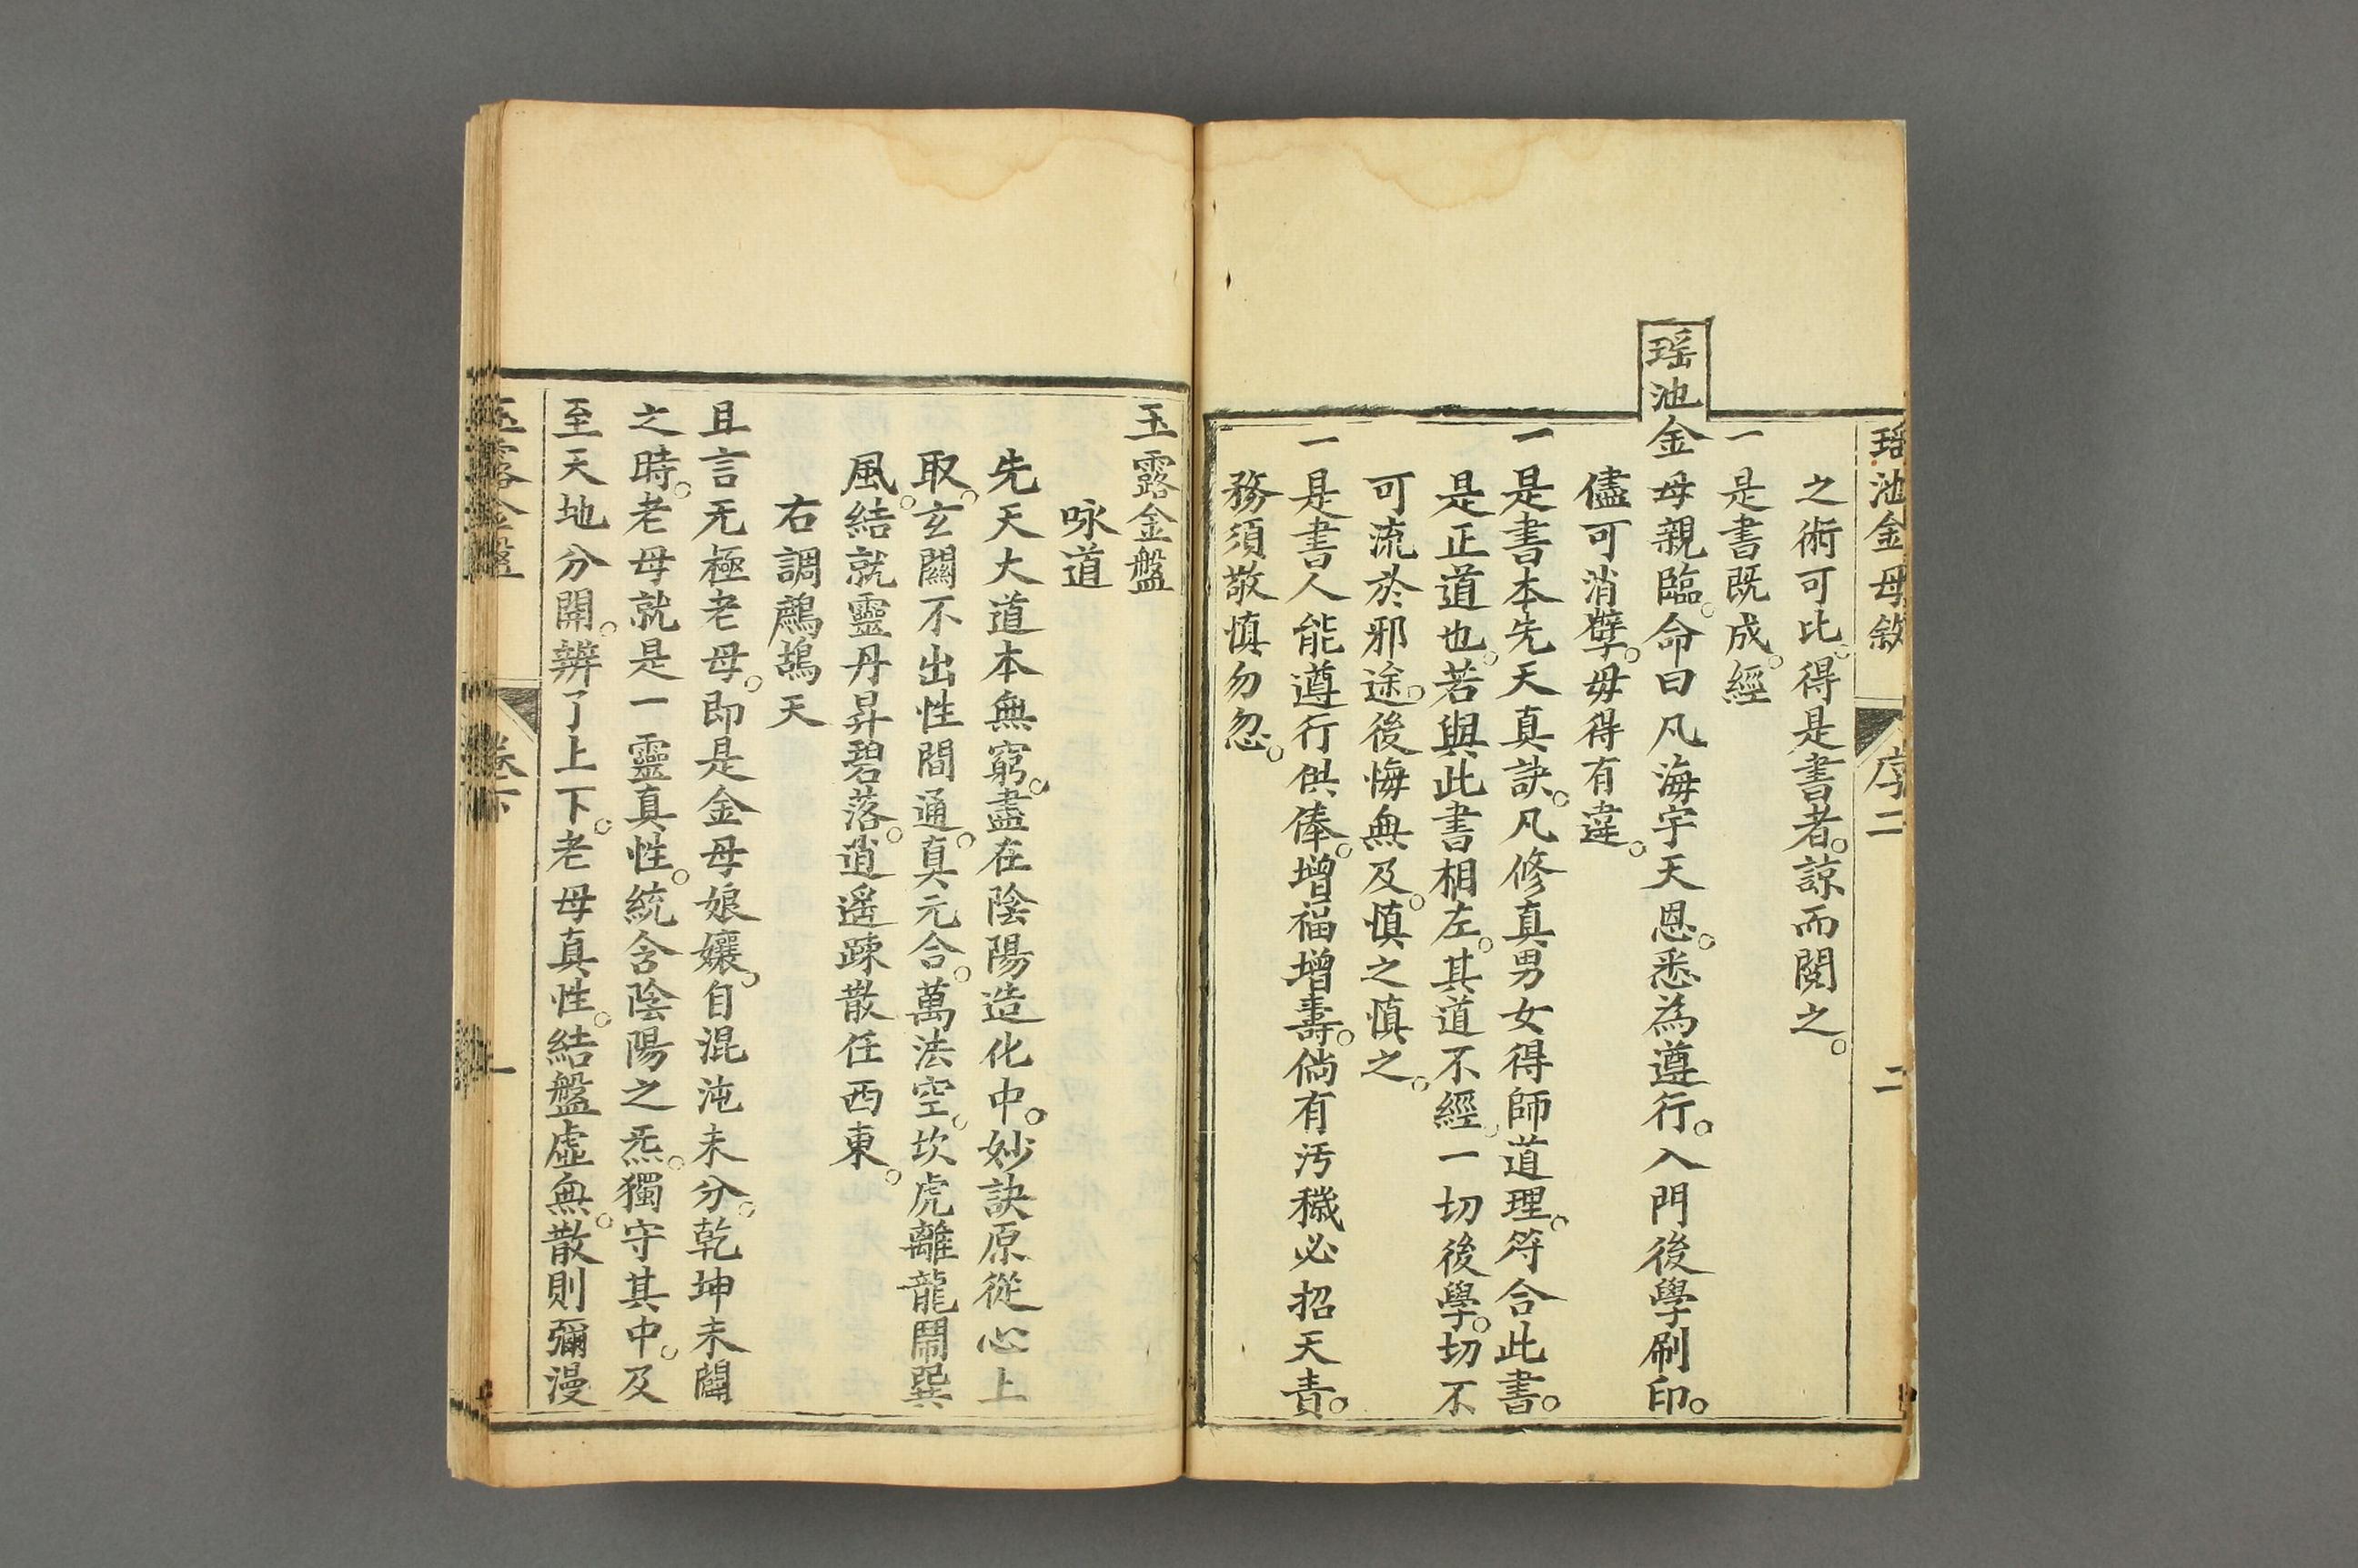 瑶池金母敘 序二 二
之術可比。得是書者。諒而閱之。
一是書既成。經
瑶池金母親臨。命曰凡海宇天恩。悉為遵行。入門後學刷印。
儘可消孽。毋得有違。
一是書本先天真訣。凡修真男女得師道理。符合此書。
是正道也。若與此書相左。其道不經。一切後學。切不
可流於邪途。後悔無及。慎之慎之。
一是書人能遵行供俸。增福增壽。倘有汚穢必招天責。
務須敬慎勿忽。
玉露金盤
咏道
先天大道本無窮。盡在陰陽造化中。妙訣原從心上
取。玄關不出性間通。真元合。萬法空。坎虎離龍鬧巽
風。結就靈丹昇碧落。逍遥踈散任西東。
右調鷓鴣天
且言无極老母。即是金母娘孃。自混沌未分。乾坤未闢
之時。老母就是一靈真性。統含陰陽之炁。獨守其中。及
至天地分開。辨了上下。老母真性。結盤虛無。散則彌漫
玉露金盤 卷下 一